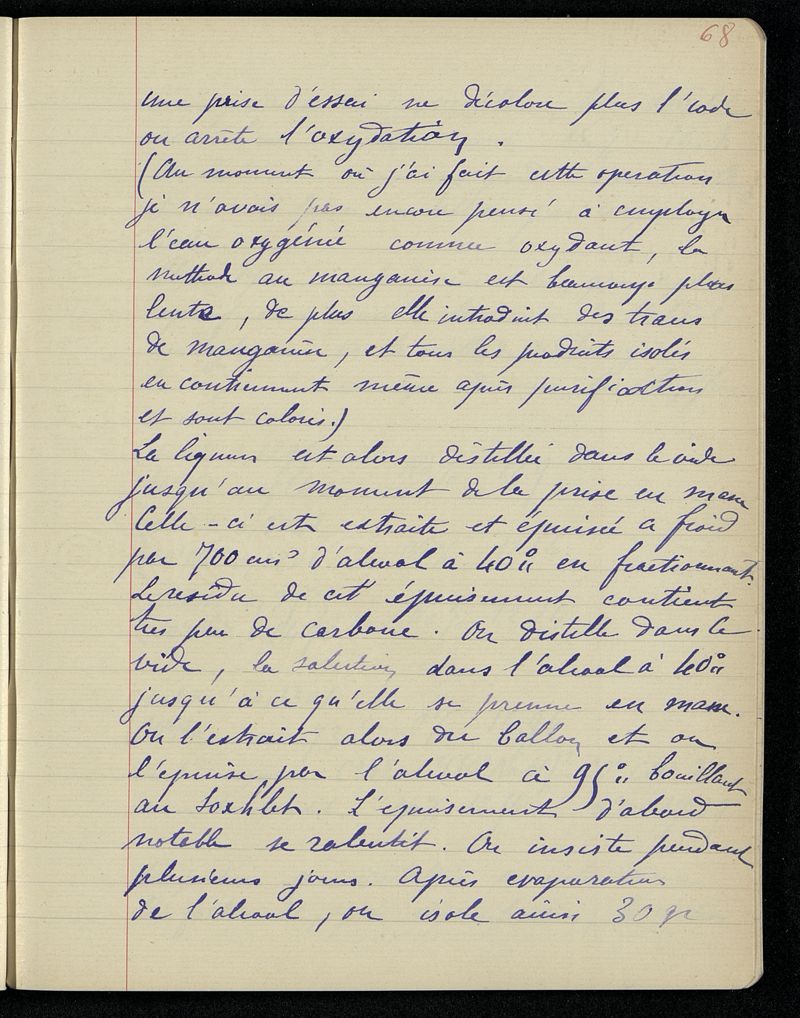 68
une prise d'essai ne décolore plus l'iode
on arrête l'oxydation.
(Au moment où j'ai fait cette operation
je n'avais pas encore pensé à employer
l'eau oxygénée comme oxydant, la
methode au manganèse est beaucoup plus
lente, de plus elle introduit des traces
de manganèse, et tous les produits isolés
en contiennent même après purification
et sont colorés.)
La liqueur est alors distillée dans le vide
jusqu'au moment de la prise en masse
Celle-ci est extraite et épuisée a froid
par 700 cm³ d'alcool à 40° en fractionnant.
Le residu de cet épuisement contient
très peu de carbone. On distille dans le
vide, la solution dans l'alcool à 40°
jusqu'à ce qu'elle se prenne en masse.
On l'extrait alors du ballon et on
l'epuise par l'alcool à 95° bouillant
au Soxhlet. L'epuisement d'abord
notable se ralentit. On insiste pendant
plusieurs jours. Après evaporation
de l'alcool, on isole ainsi 30 gr